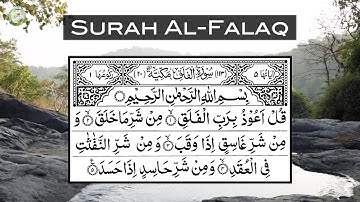 SURAH AL-FALAQ
اٰیَاتُهَا ۵ (۱۱۳) سُوْرَةُ الْفَلَقِ مَكِّیَّةٌ (۲۰) رُكُوْعُهَا ۱
بِسْمِ اللّٰهِ الرَّحْمٰنِ الرَّحِیْمِ
قُلْ اَعُوْذُ بِرَبِّ الْفَلَقِ ۙ۱ مِنْ شَرِّ مَا خَلَقَ ۙ۲ وَ
مِنْ شَرِّ غَاسِقٍ اِذَا وَقَبَ ۙ۳ وَ مِنْ شَرِّ النَّفّٰثٰتِ
فِی الْعُقَدِ ۙ۴ وَ مِنْ شَرِّ حَاسِدٍ اِذَا حَسَدَ ۵